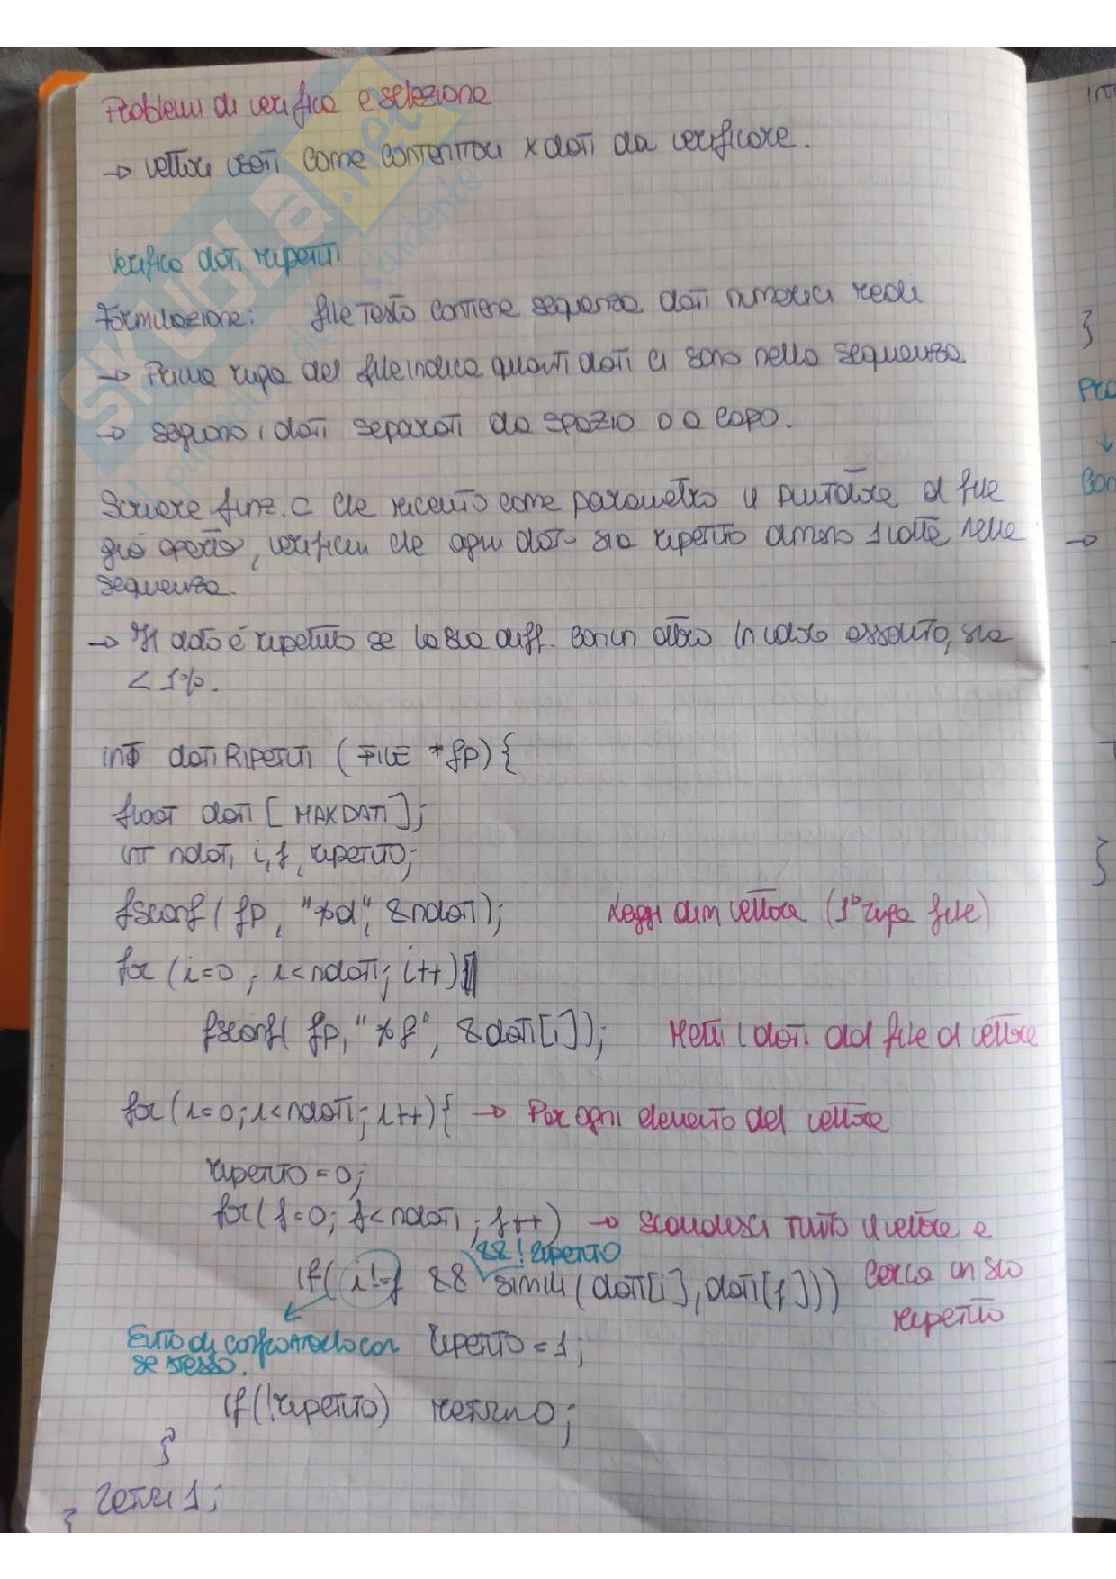 Problemi di verifica e selezione
→ vettori usati come contenitori x dati da verificare.
Verifica dati ripetuti
Formulazione: file testo contiene sequenza dati numerici reali
→ Prima riga del file indica quanti dati ci sono nella sequenza.
→ seguono i dati separati da spazio o a capo.
Scrivere funz. C che ricevuto come parametro il puntatore al file
già aperto, verifichi che ogni dato sia ripetuto almeno 1 volta nella
sequenza.
→ Il dato è ripetuto se la sua diff. con un altro in valore assoluto, sia
< 1%.
int datiRipetuti (FILE *fp) {
float dati [MAXDATI];
int ndati, i, j, ripetuto;
fscanf (fp, "%d", &ndati); Leggi dim vettore (1° riga file)
for (i=0; i<ndati; i++)
fscanf( fp, "%f", &dati[i]); Metti i dati dal file al vettore
for (i=0; i<ndati; i++) { → Per ogni elemento del vettore
ripetuto=0;
for (j=0; j<ndati; j++) → scandisci tutto il vettore e
&& !ripetuto
if( i!=j && simili (dati[i], dati[j])) cerca un suo
ripetuto
Evito di confrontarlo con ripetuto = 1;
se stesso.
if(!ripetuto) return 0;
}
return 1;
}
SKUOLA.net